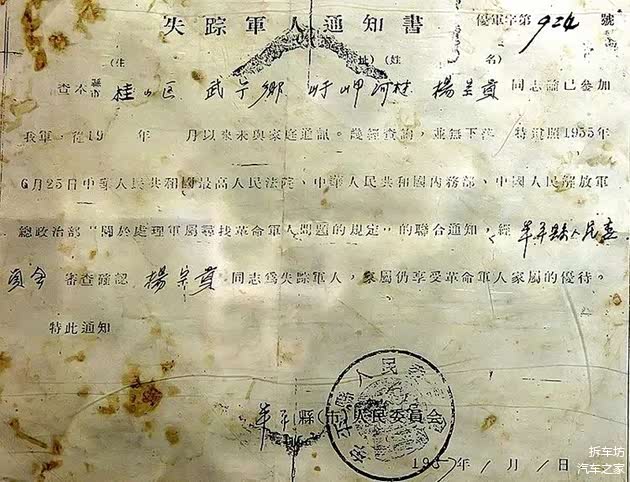 失踪軍人通知書
優軍字第924號
(住 址)(姓 名)
查本縣市桂山区 武宁鄉 河村 楊崇貴同志確已參加
我軍，從19 年 月以來未與家庭通訊。幾經查詢，並無下落 特遵照1955年
6月25日中華人民共和國最高人民法院、中華人民共和國內務部、中國人民解放軍
總政治部“關於處理軍屬尋找革命軍人問題的規定”的聯合通知，經 縣人民委
員会 審查確認 楊崇貴 同志爲失踪軍人，家屬仍享受革命軍人家屬的優待。
特此通知
縣(市)人民委員會
1957年1月1日
拆车坊
汽车之家